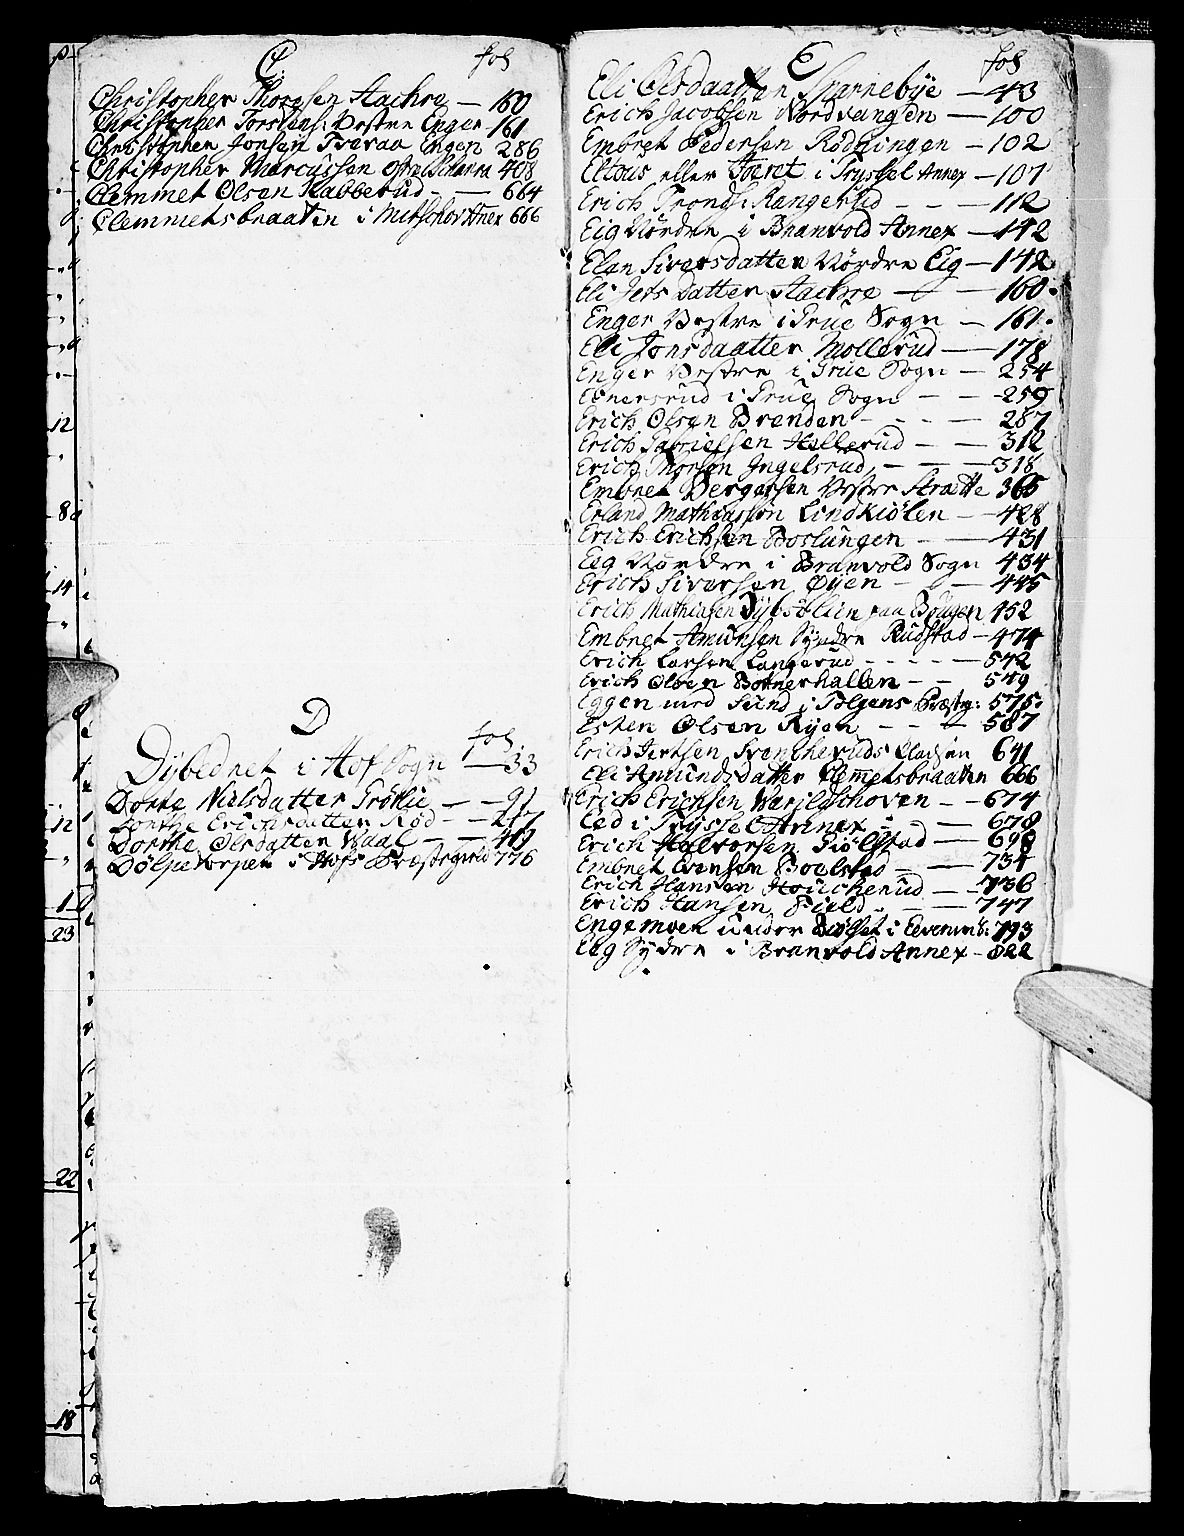 C fol
Christopher Thoresen Aachre — 160
Christopher Torstens: Vestre Enger - 161
Christopher Jonsen Tveraa Engen 286
Christopher Marcussen 408
Clemmet Olsen Rabberud — — 664
Clemmetsbraaten i Annex 666
D
fol
Dybednet i Hof Sogn — 33
Dorte Nielsdatter — — 91
Dorthe Erichsdatter Rød — — 277
Dorthe Olsdatter Waal — —
Dølpetorpen i Hofs Præstegield 776
E fol
Eli Olsdaatter Skarnebye — 43
Erich Jacobsen Nordvangen — 100
Embret Pedersen Rødningen — 102
Eltous eller i Tryssel Annex — 107
Erich Tronds: Rangerud — — — 112
Eig Nørdre i Branvold Annex — 142
Elen Siversdatter Nørdre Eig — 142
Eli Jens datter Aachre — — 160
Enger Vestre i Grue Sogn — 161
Eli Jonsdaatter Mollerud — 178
Enger Vestre i Grue Sogn — 254
Ebnersrud i Grue Sogn — — 259
Erich Olsen Brenden — — — 287
Erich Gabrielsen Hellerud — — 312
Erich Thorsen Ingelsrud — — — 318
Embret Bergersen Vestre Strætte 365
Erland Mathiassøn Lindkiølen — 428
Erich Erichsen Boslungen — — 431
Eeg Nørdre i Branvold Sogn 434
Erich Siversen Øyen — — — 445
Erich Mathiasen paa 452
Embret Amundsen Syndre Rudstad — 474
Erich Larsen Langerud — — — — 542
Erich Olsen Bottnerhallen — — 549
Eggen med Sund i Tolgens Præsteg: 575
Esten Olsen Ryen — — — 587
Erich Jertsen Svencheruds 641
Eli Amundsdatter Clemetsbraaten 666
Erich Erichsen Warjldschoven — — 674
Eed i Tryssel Annex — — 678
Erich Halvorsen Giølstad — 698
Embret Evensen Boelstad — — 734
Erich Hansen Houcherud — — 736
Erich Hansen Field — — — 747
Engemoen under i Elverum S: 793
Eeg Sydre i Branvold Annex — 822